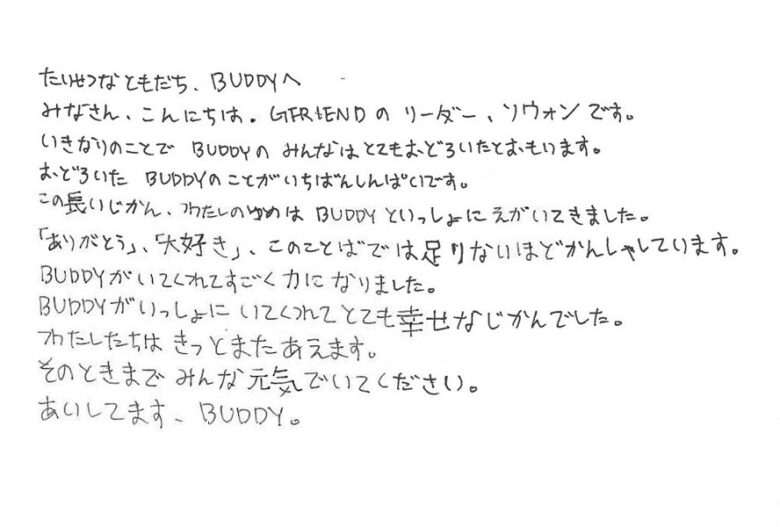 たいせつなともだち、BUDDYへ
みなさん、こんにちは。GFRIENDの リーダー、ソウォンです。
いきなりのことで BUDDYの みんなはとてもおどろいたとおもいます。
おどろいた BUDDYのことがいちばんしんぱいです。
この長いじかん、わたしのゆめは BUDDYといっしょにえがいてきました。
「ありがとう」、「大好き」、このことばでは足りないほどかんしゃしています。
BUDDYがいてくれてすごく力になりました。
BUDDYがいっしょに いてくれて とても幸せなじかんでした。
わたしたちは きっとまたあえます。
そのときまで みんな元気でいてください。
あいしてます、BUDDY。